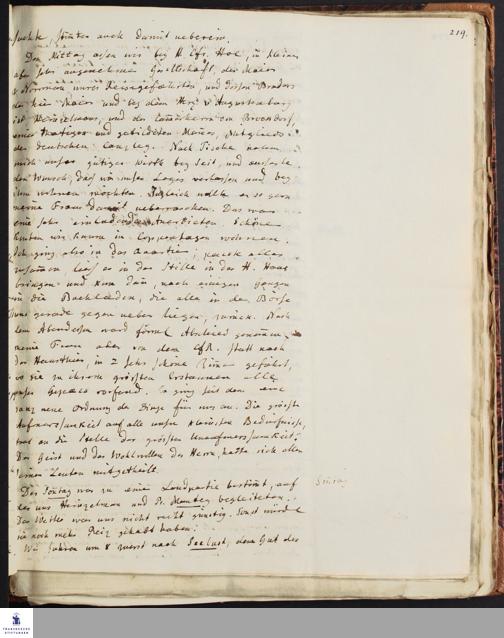 219.
suchte, stimten auch damit ueberein.
Den Mittag assen wir bey H. Cfr. Hoe, in kleiner
aber sehr angenehmer Gesellschaft, der Maler
unsres Reisegefaehrten, und dessen Bruders
der hier Maler und bey dem Herz. v. Augustenburg
ist und des Cammerherrn von Broendorf,
eines und gebildeten Mannes, Mitglieds
der deutschen Canzley. Nach Tische nahm
mich unser gütiger Wirth bey Seit, und aeusserte
den Wunsch, dass wir unser Logis verlassen und bey
ihm wohnen moechten. Zugleich wollte er so gern
meine Frau damit ueberraschen. Das war
eine sehr einladende Anerbieten. Schöner
konten wir kaum in Copenhagen wohnen.
Ich ging also in das Quartier, packte alles
zusamen, liess es in der Stille in des H. Haus
bringen und kam dann, nach einigen gaengen
in die Buchlaeden, die alle in der Börse
uns gerade gegen ueber liegen, zurück. Nach
dem Abendessen ward förml. Abschied genomen,
meine Frau aber von dem Cfr. statt nach
der Hausthür, in 2 sehr schöne Zimer geführt,
wo sie zu ihrem grössten Erstaunen alle
unser Gepaeck vorfand. So ging seit dem eine
ganz neue Ordnung der Dinge für uns an. Die grösste
Aufmerksamkeit auf alle unsre kleinsten Bedürfnisse,
trat an die Stelle der grössten Unaufmerksamkeit.
Der Geist und das Wohlwollen des Herrn, hatte sich allen
seinen Leuten mitgetheilt.
Der Sontag war zu einer Landpartie bestimt, auf
der uns Heinzelman und Dr. Munter begleiteten.
Das Wetter war uns nicht recht günstig. Sonst würde
sie noch mehr Reiz gehabt haben.
Wir fuhren um 8 zuerst nach Seelust, dem Gut des
FRANCKESCHE STIFTUNGEN